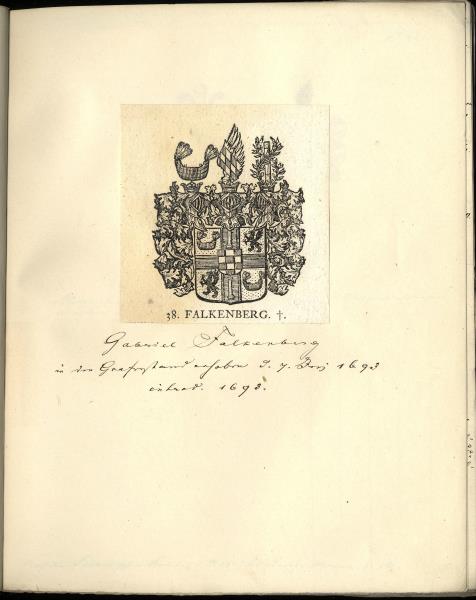 38. FALKENBERG. †.
Gabriel Falkenberg
in den Grafenstand erhoben d. 7. 1693
introd. 1693.